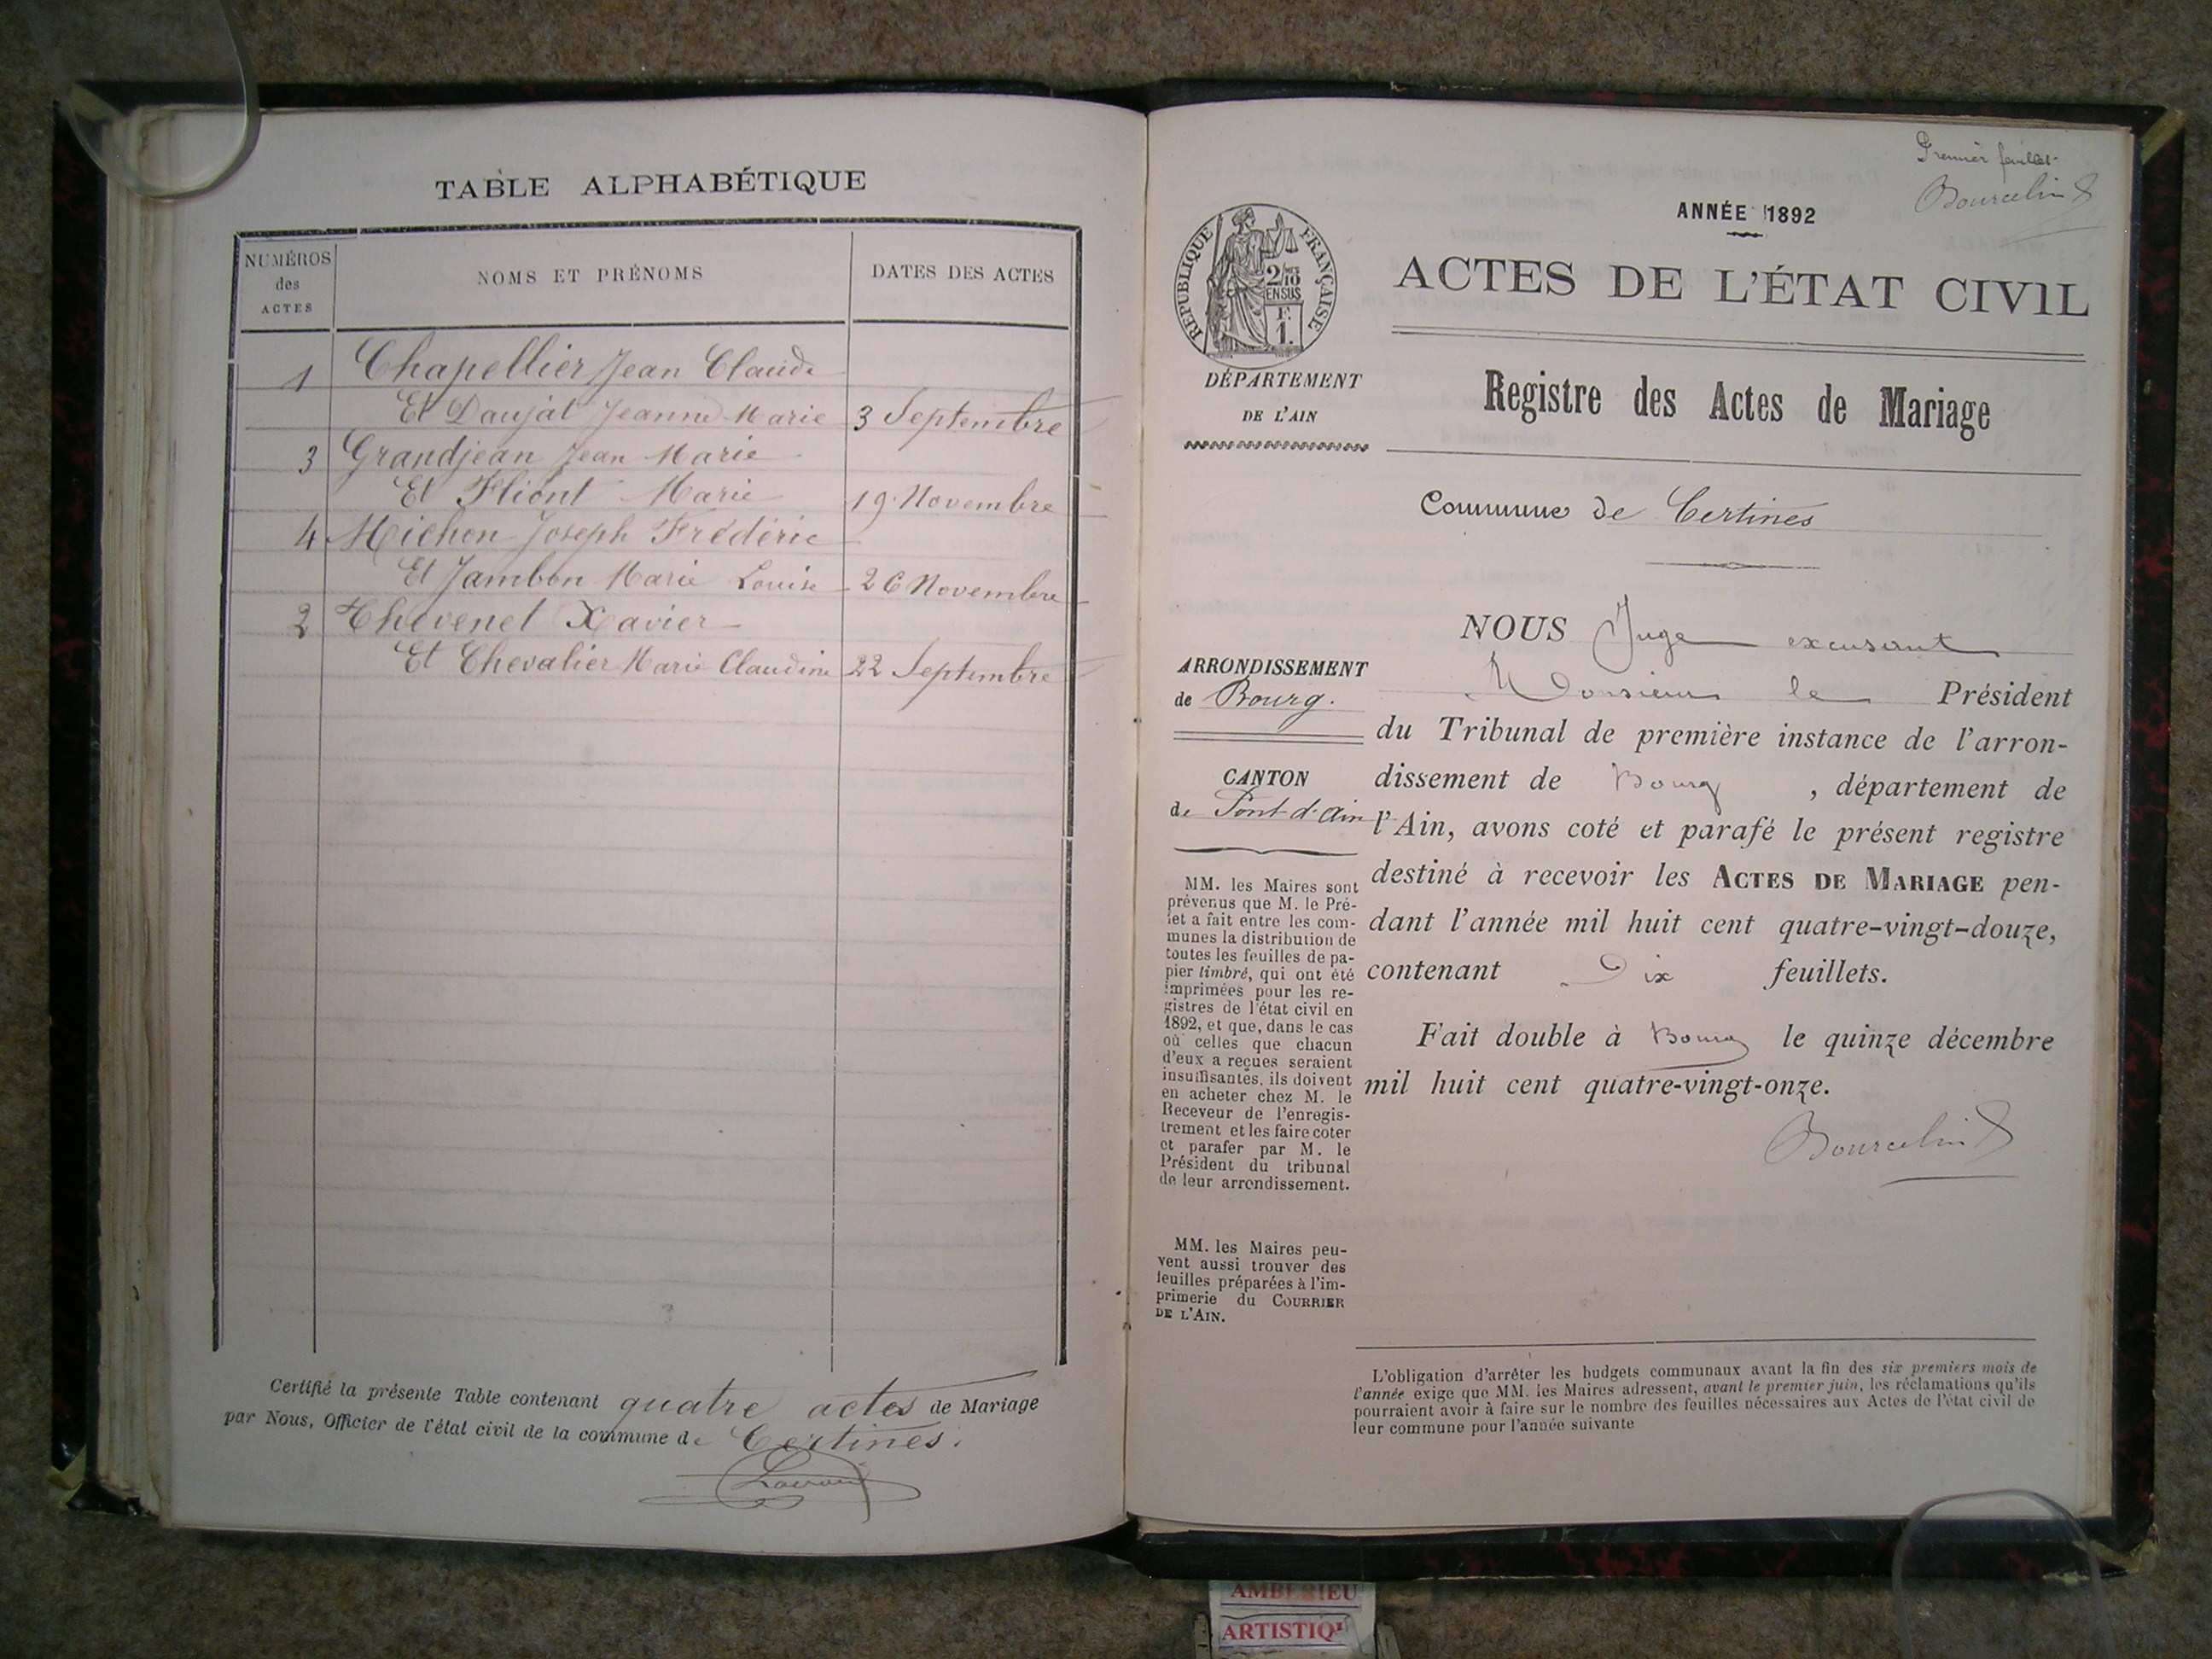 TABLE ALPHABÉTIQUE
NUMÉROS des ACTES
NOMS ET PRÉNOMS
DATES DES ACTES
1 Chapellier Jean Claude
Et Daujat Jeanne Marie 3 Septembre
3 Grandjean Jean Marie
Et Fliont Marie 19 Novembre
4 Michon Joseph Frédéric
Et Jambon Marie Louise 26 Novembre
2 Thevenet Xavier
Et Chevalier Marie Claudine 22 Septembre
Certifié la présente Table contenant quatre actes de Mariage
par Nous, Officier de l'état civil de la commune de Certines.
Premier feuillet
Bourcelin
ANNÉE 1892
RÉPUBLIQUE FRANÇAISE
2/10 EN SUS
F. 1.
ACTES DE L'ÉTAT CIVIL
DÉPARTEMENT
DE L'AIN
Registre des Actes de Mariage
Commune de Certines
ARRONDISSEMENT
de Bourg.
CANTON
de Pont d'Ain
MM. les Maires sont
prévenus que M. le Pré-
fet a fait entre les com-
munes la distribution de
toutes les feuilles de pa-
pier timbré, qui ont été
imprimées pour les re-
gistres de l'état civil en
1892, et que, dans le cas
où celles que chacun
d'eux a reçues seraient
insuffisantes, ils doivent
en acheter chez M. le
Receveur de l'enregis-
trement et les faire coter
et parafer par M. le
Président du tribunal
de leur arrondissement.
MM. les Maires peu-
vent aussi trouver des
feuilles préparées à l'im-
primerie du COURRIER
DE L'AIN.
NOUS Juge excusant
Monsieur le Président
du Tribunal de première instance de l'arron-
dissement de Bourg, département de
l'Ain, avons coté et parafé le présent registre
destiné à recevoir les ACTES DE MARIAGE pen-
dant l'année mil huit cent quatre-vingt-douze,
contenant Dix feuillets.
Fait double à Bourg le quinze décembre
mil huit cent quatre-vingt-onze.
Bourcelin
L'obligation d'arrêter les budgets communaux avant la fin des six premiers mois de
l'année exige que MM. les Maires adressent, avant le premier juin, les réclamations qu'ils
pourraient avoir à faire sur le nombre des feuilles nécessaires aux Actes de l'état civil de
leur commune pour l'année suivante
AMBERIEU
ARTISTIQ